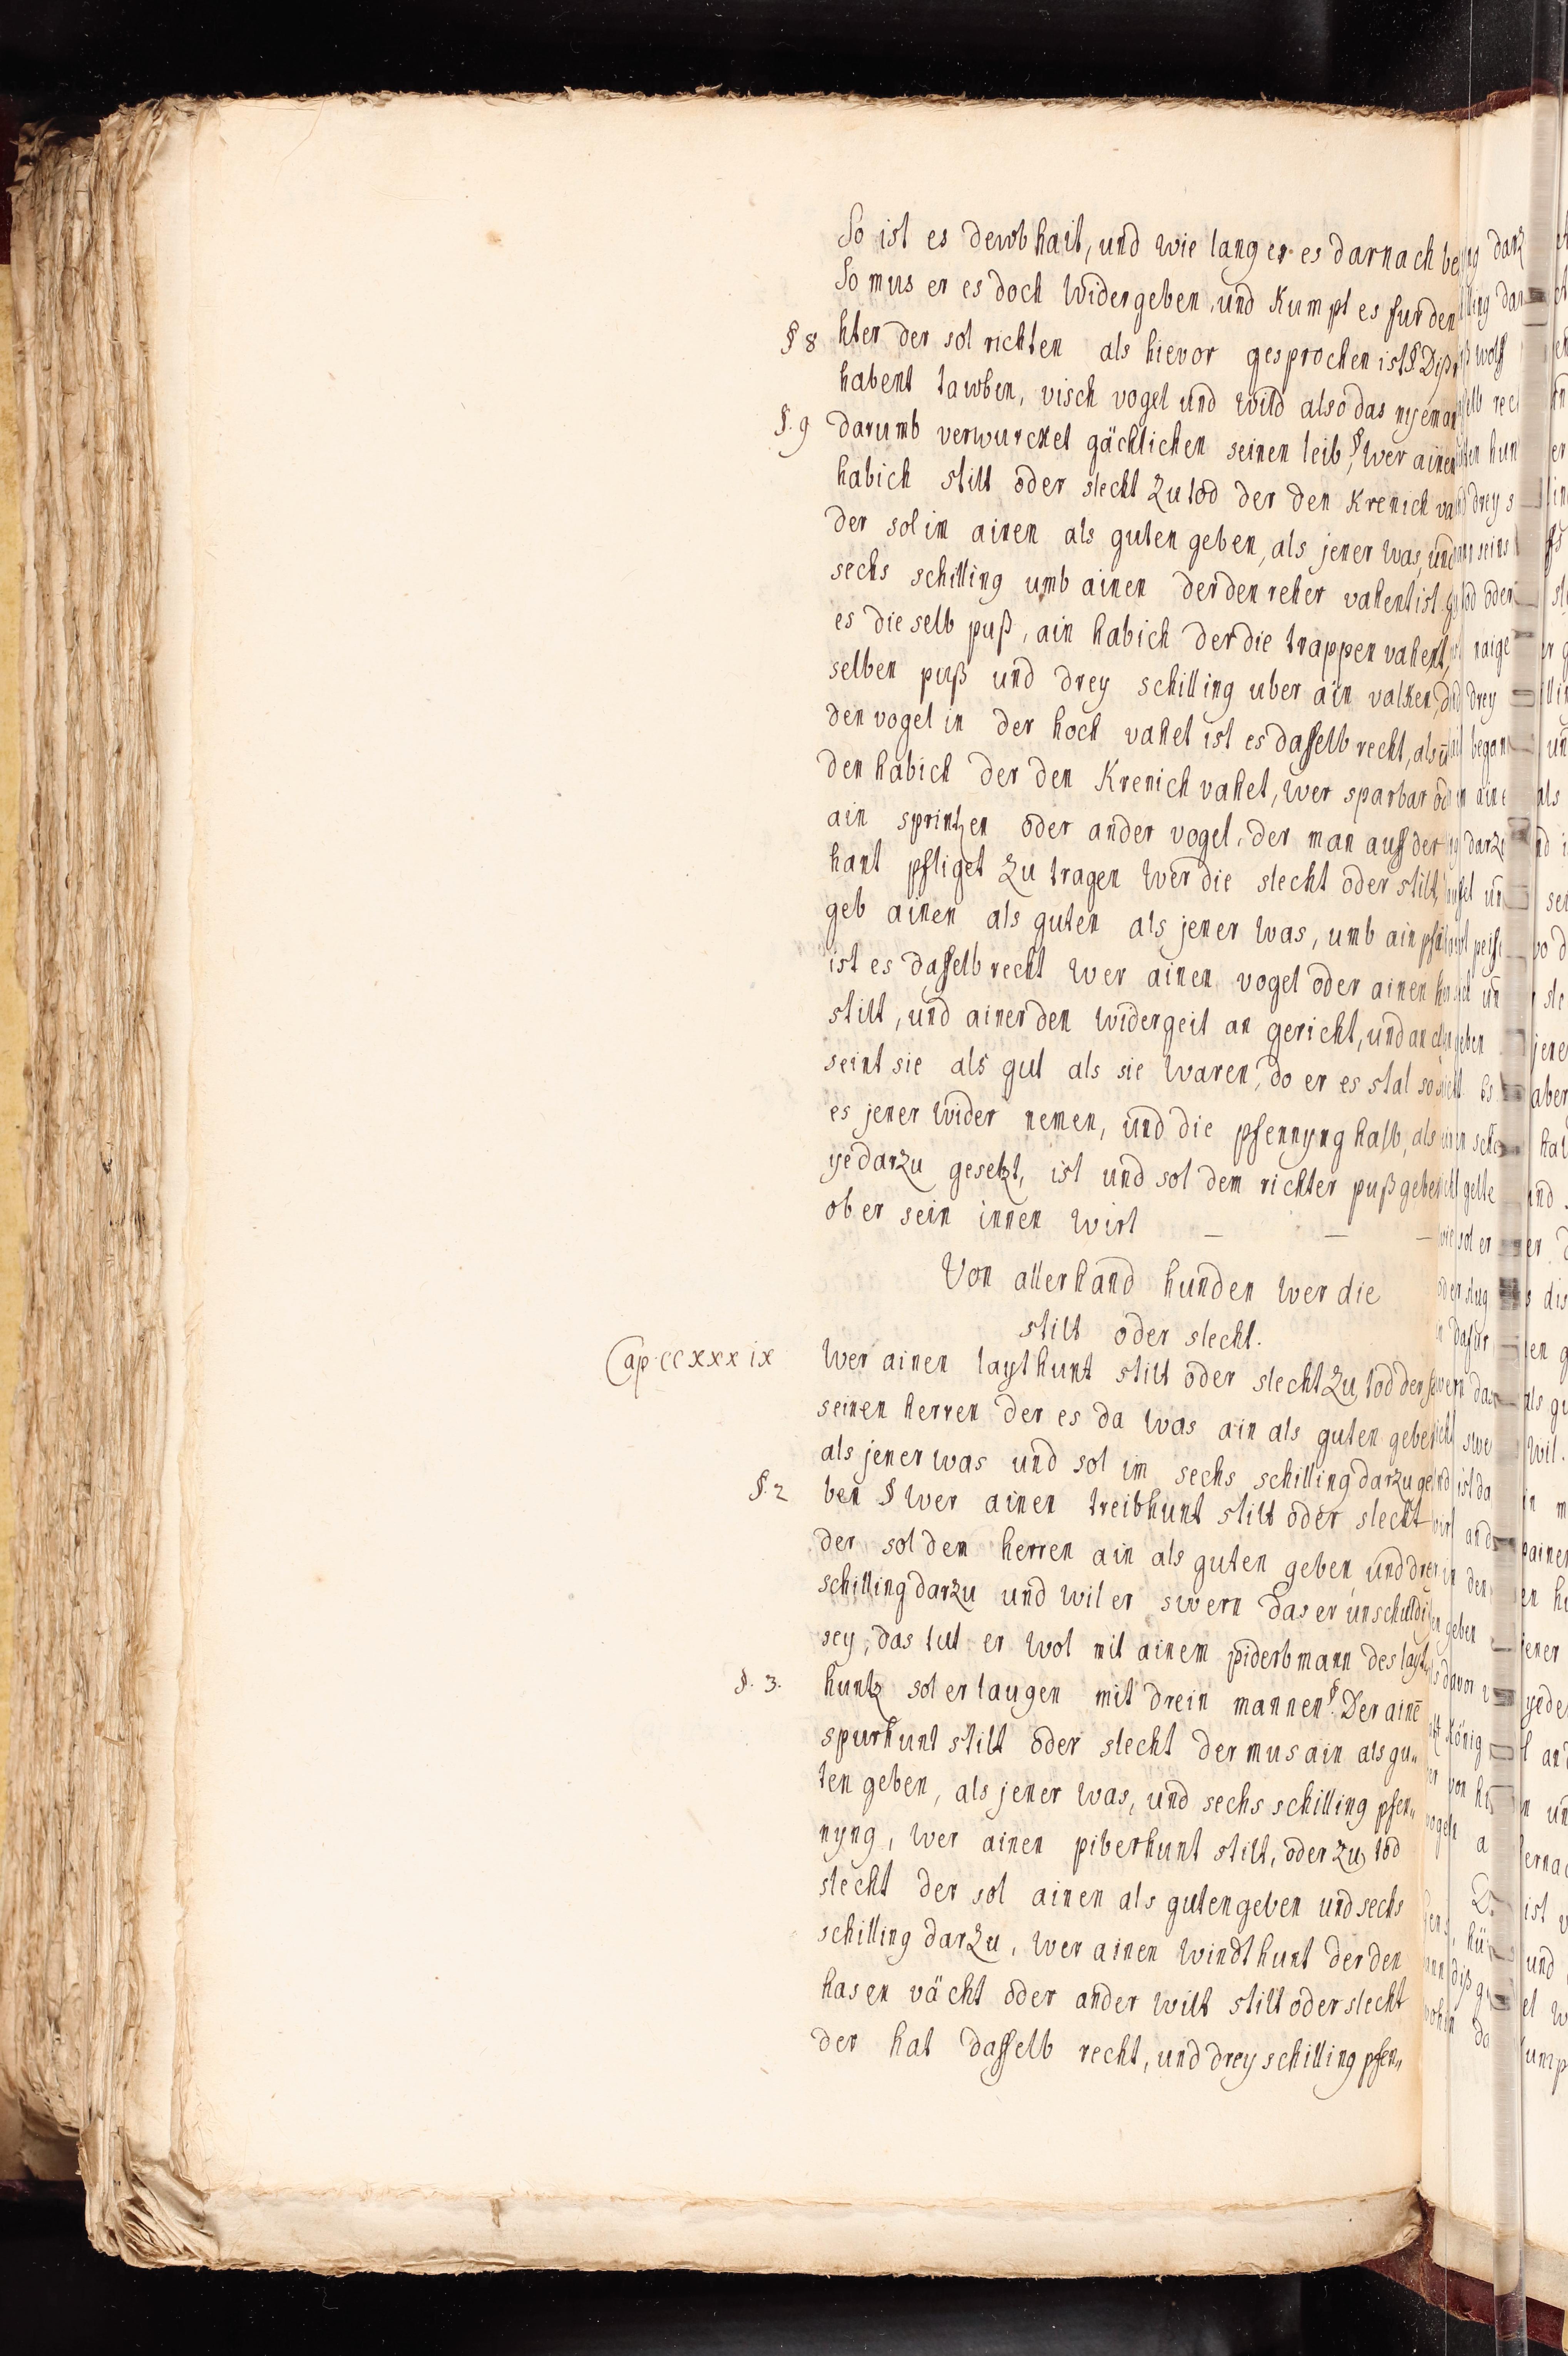 So ist es dewbhait, und wie lang er es darnach
So mus er es doch widergeben, und Kumpt es fur den
§ 8 hter der sol richten als hievor gesprochen ist §. Diß
habent tawben, visch vogel und wild also das nyeman
§. 9 darumb verwurcket gächlichen seinen leib, § wer ainen
habich stilt oder slecht zu tod der den Krenich
der sol im ainen als guten geben, als jener was, und
sechs schilling umb ainen der den reher vahent ist
es die selb puß, ain habich der die trappen vahent,
selben puß und drey schilling uber ain valken,
den vogel in der hoch vahet ist es dasselb recht, als
den habich der den Krenich vahet, wer sparbar
ain sprintzen oder ander vogel, der man auff der
hant pfliget zu tragen wer die slecht oder stilt,
geb ainen als guten als jener was, umb ain
ist es dasselb recht wer ainen vogel oder ainen
stilt, und ainer den widergeit an gericht, und an
seint sie als gut als sie waren, do er es stal so
es jener wider nemen, und die pfennyng halb, als
ye darzu gesetzt, ist und sol dem richter puß geben
ob er sein innen wirt — — —
Von allerhand hunden wer die
stilt oder slecht.
Cap. CCXXXIX wer ainen laythunt stilt oder slecht zu tod der
seinen herren der es da was ain als guten geben
als jener was und sol im sechs schilling darzu ge
§. 2 ben § wer ainen treibhunt stilt oder slecht
der sol dem herren ain als guten geben und drey
schilling darzu und wil er swern das er unschuldi
sey, das tut er wol mit ainem piderbmann des layt
§. 3. huntz sol er laugen mit drein mannen §. Der ainē
spurhunt stilt oder slecht der mus ain als gu„
ten geben, als jener was, und sechs schilling pfen„
nyng, wer ainen piberhunt stilt, oder zu tod
slecht der sol ainen als guten geben und sechs
schilling darzu, wer ainen windthunt der den
hasen vächt oder ander wilt stilt oder slecht
der hat dasselb recht, und drey schilling pfen„